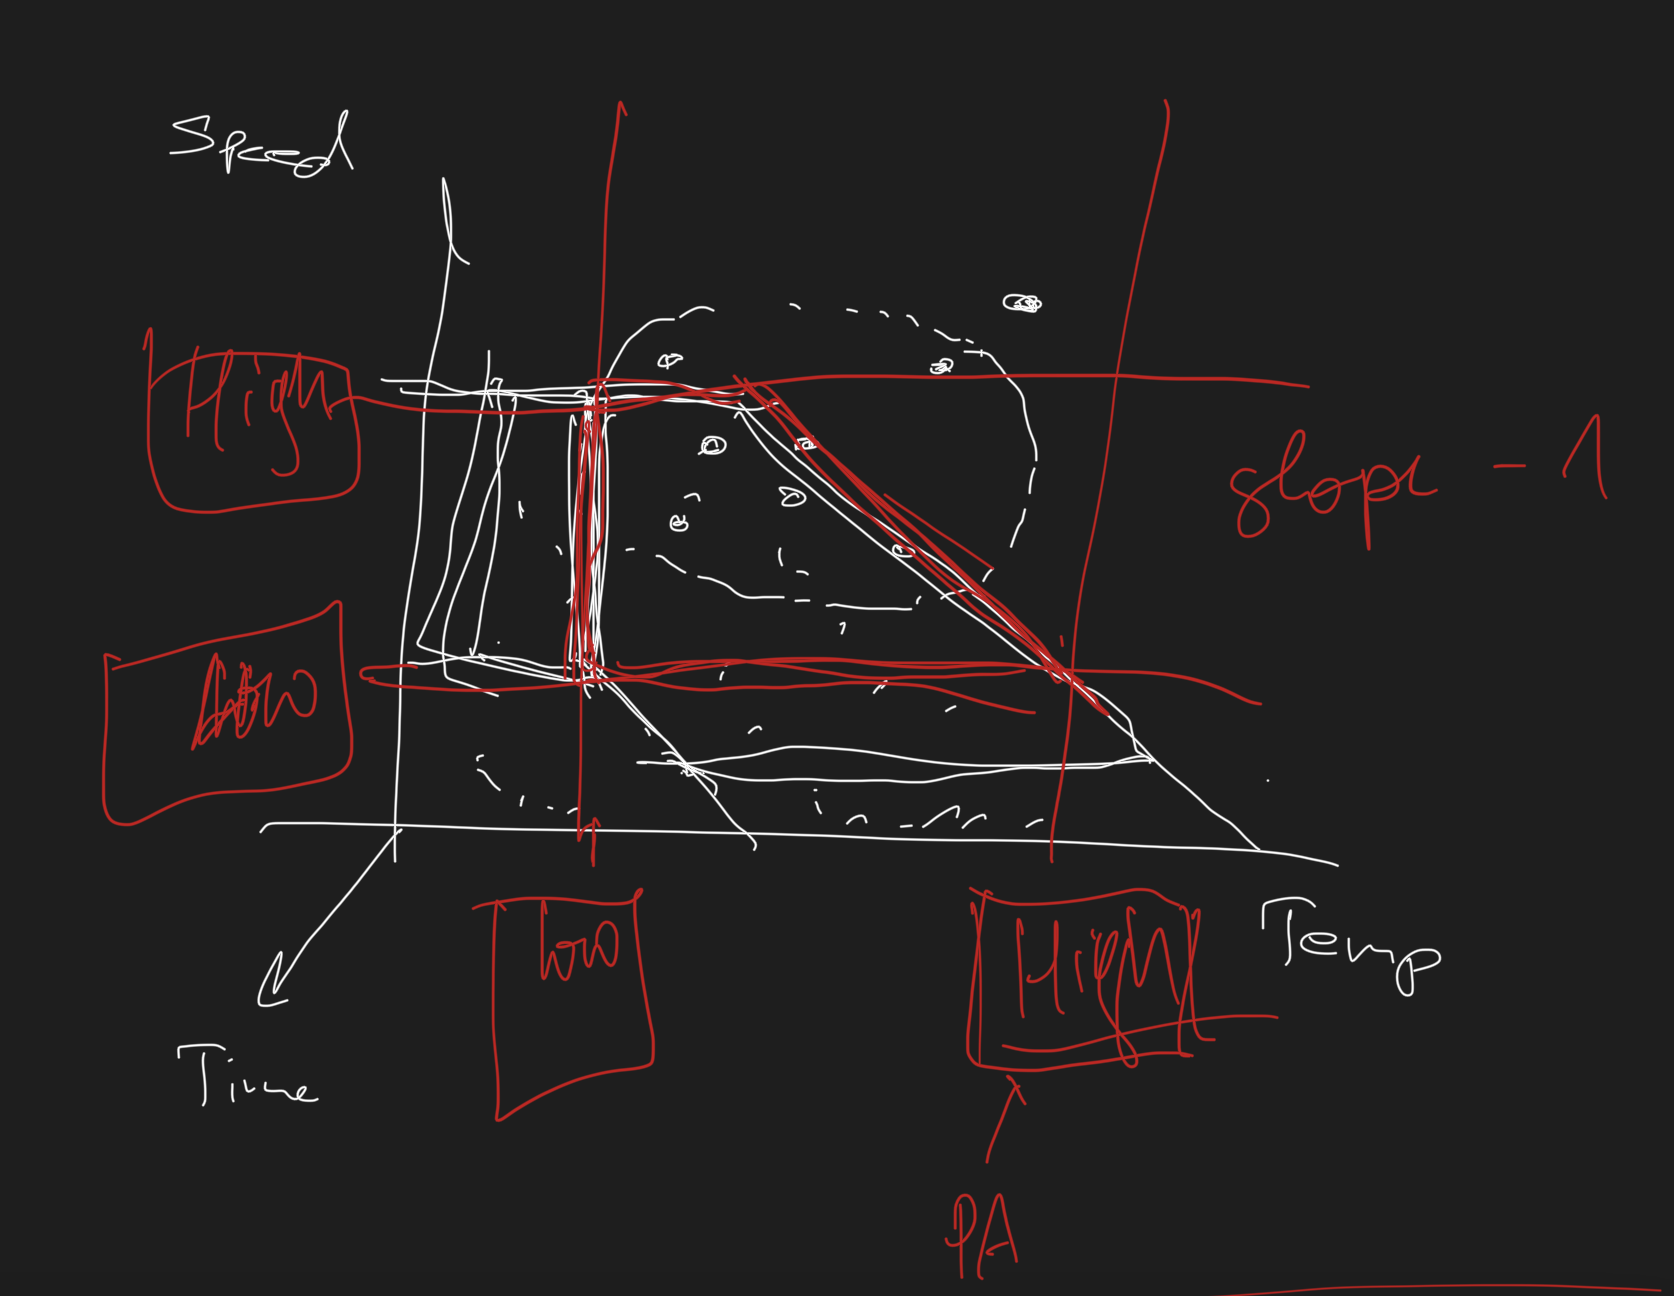 Speed
High
slope - 1
Low
Low
High
Temp
Time
PA